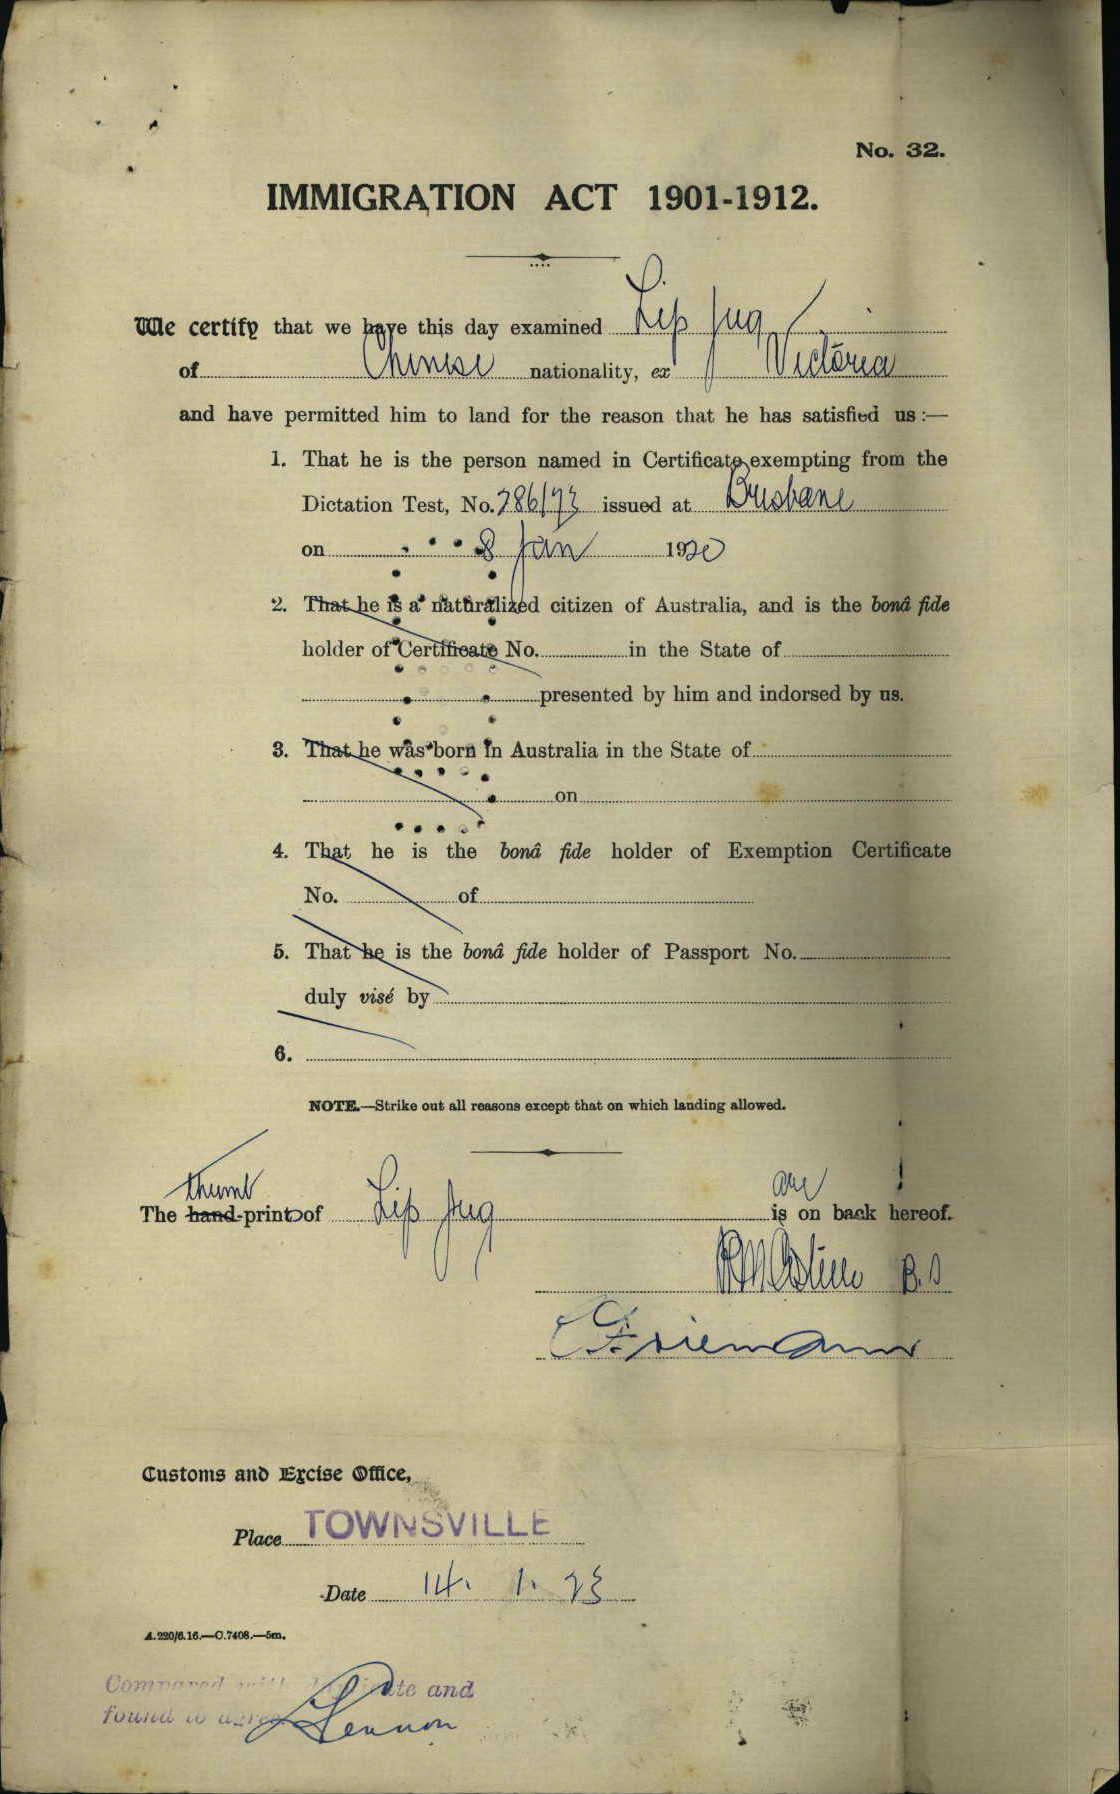 No. 32.
IMMIGRATION ACT 1901-1912.
We certify that we have this day examined Lip Jug
of Chinese nationality, ex Victoria
and have permitted him to land for the reason that he has satisfied us :—
1. That he is the person named in Certificate exempting from the
Dictation Test, No. 286/73 issued at Brisbane
on 8 Jan 1920
2. That he is a naturalized citizen of Australia, and is the bonâ fide
holder of Certificate No. in the State of
presented by him and indorsed by us.
3. That he was born in Australia in the State of
on
4. That he is the bonâ fide holder of Exemption Certificate
No. of
5. That he is the bonâ fide holder of Passport No.
duly visé by
6.
NOTE.—Strike out all reasons except that on which landing allowed.
thumb are
The hand-prints of Lip Jug is on back hereof.
Customs and Excise Office,
Place TOWNSVILLE
Date 14. 1. 23
A.220/6.16.—C.7408.—5m.
Compared with duplicate and
found to agree